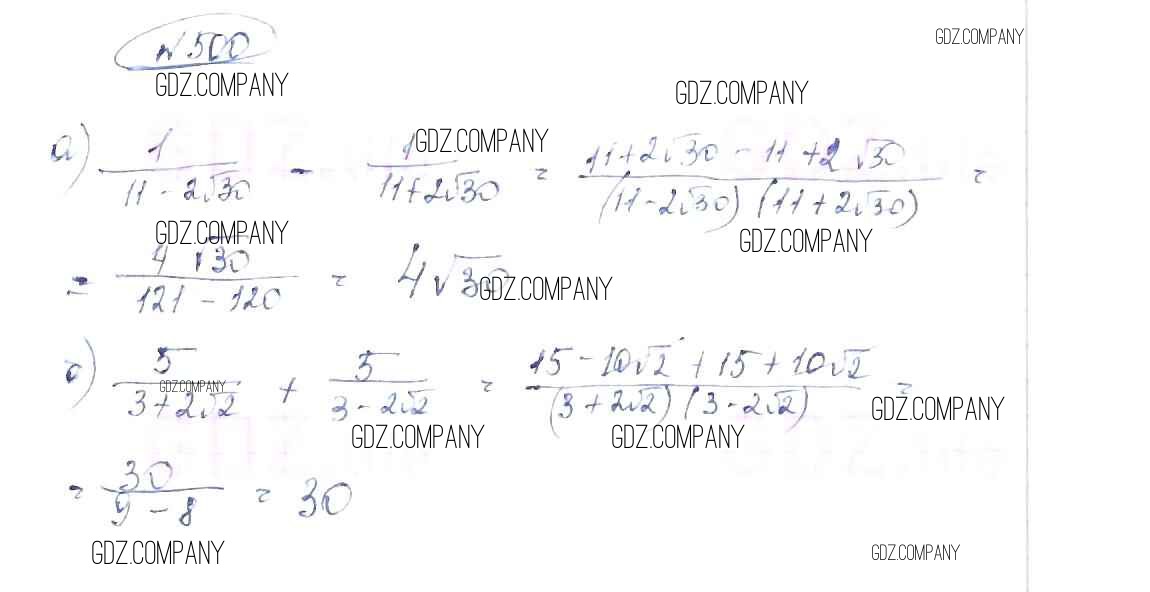 №500
GDZ.COMPANY
GDZ.COMPANY
GDZ.COMPANY
GDZ.COMPANY
а) 1/(11 - 2√30) - 1/(11 + 2√30) = (11 + 2√30 - 11 + 2√30)/((11 - 2√30)(11 + 2√30)) =
GDZ.COMPANY
GDZ.COMPANY
= 4√30/(121 - 120) = 4√30
GDZ.COMPANY
б) 5/(3 + 2√2) + 5/(3 - 2√2) = (15 - 10√2 + 15 + 10√2)/((3 + 2√2)(3 - 2√2)) =
GDZ.COMPANY
GDZ.COMPANY
GDZ.COMPANY
GDZ.COMPANY
= 30/(9 - 8) = 30
GDZ.COMPANY
GDZ.COMPANY